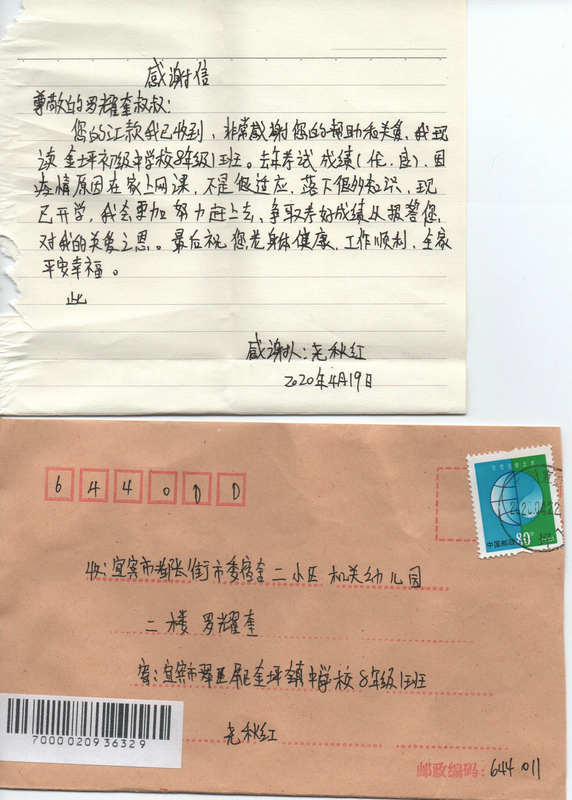 感谢信
尊敬的罗耀奎叔叔：
您的江款我已收到，非常感谢您的帮助和关爱，我现
读金坪初级中学校8年级1班。去年考试成绩（优．良），因
疫情原因在家上网课，不是很适应，落下很多知识，现
已开学，我会更加努力赶上去、争取考好成绩从报答您，
对我的关爱之恩。最后祝您老身体健康，工作顺利，全家
平安幸福。
此
感谢人：尧秋红
2020年4月19日
644000
中国邮政 80分
收：宜宾市都长街市委宿舍二小区机关幼儿园
二楼 罗耀奎
寄：宜宾市翠屏区金坪镇中学校8年级1班
尧秋红
7000020936329
邮政编码：644011